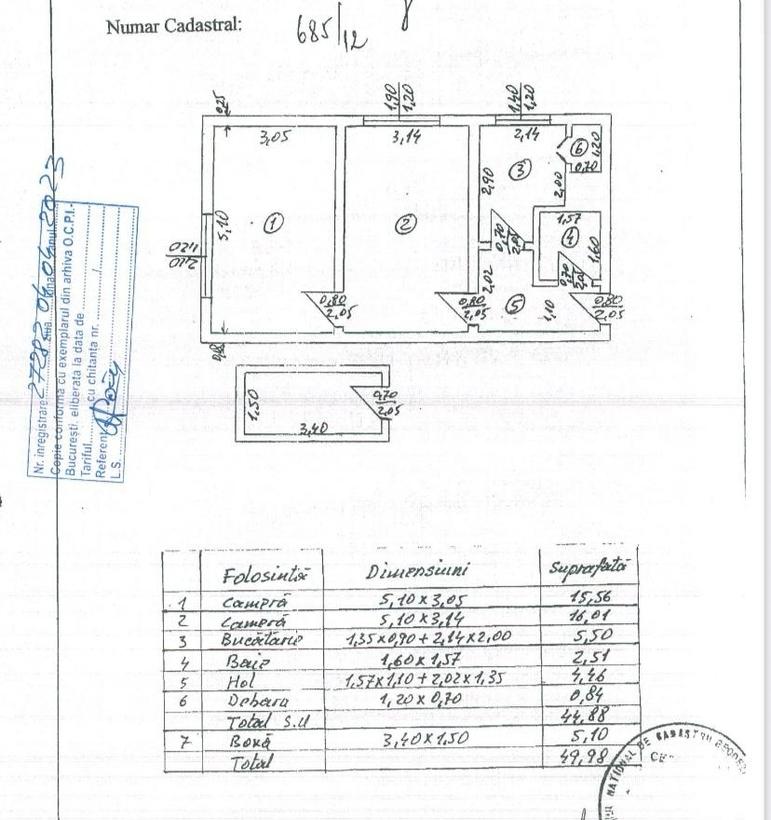 Numar Cadastral: 685/12
0,25
1,90
1,20
1,40
1,20
3,05
3,14
2,14
6
1,20
0,70
3
2,90
2,00
1,57
5,10
1
2
4
0,70
1,60
2,02
0,70
0,80
2,05
0,80
2,05
5
1,10
0,80
2,05
1,50
0,70
2,05
3,40
Nr. inregistrare 27282 ziua 04 luna 04 anul 2023
Copie conforma cu exemplarul din arhiva O.C.P.I.-
Bucuresti, eliberata la data de
Tariful cu chitanta nr. /
Referent
L.S.
Folosintă Dimensiuni Suprafată
1 Cameră 5,10 x 3,05 15,56
2 Cameră 5,10 x 3,14 16,01
3 Bucătarie 1,35 x 0,90 + 2,14 x 2,00 5,50
4 Baie 1,60 x 1,57 2,51
5 Hol 1,57 x 1,10 + 2,02 x 1,35 4,46
6 Debara 1,20 x 0,70 0,84
Total S.U 44,88
7 Boxă 3,40 x 1,50 5,10
Total 49,98
NATIONAL DE CADASTRU